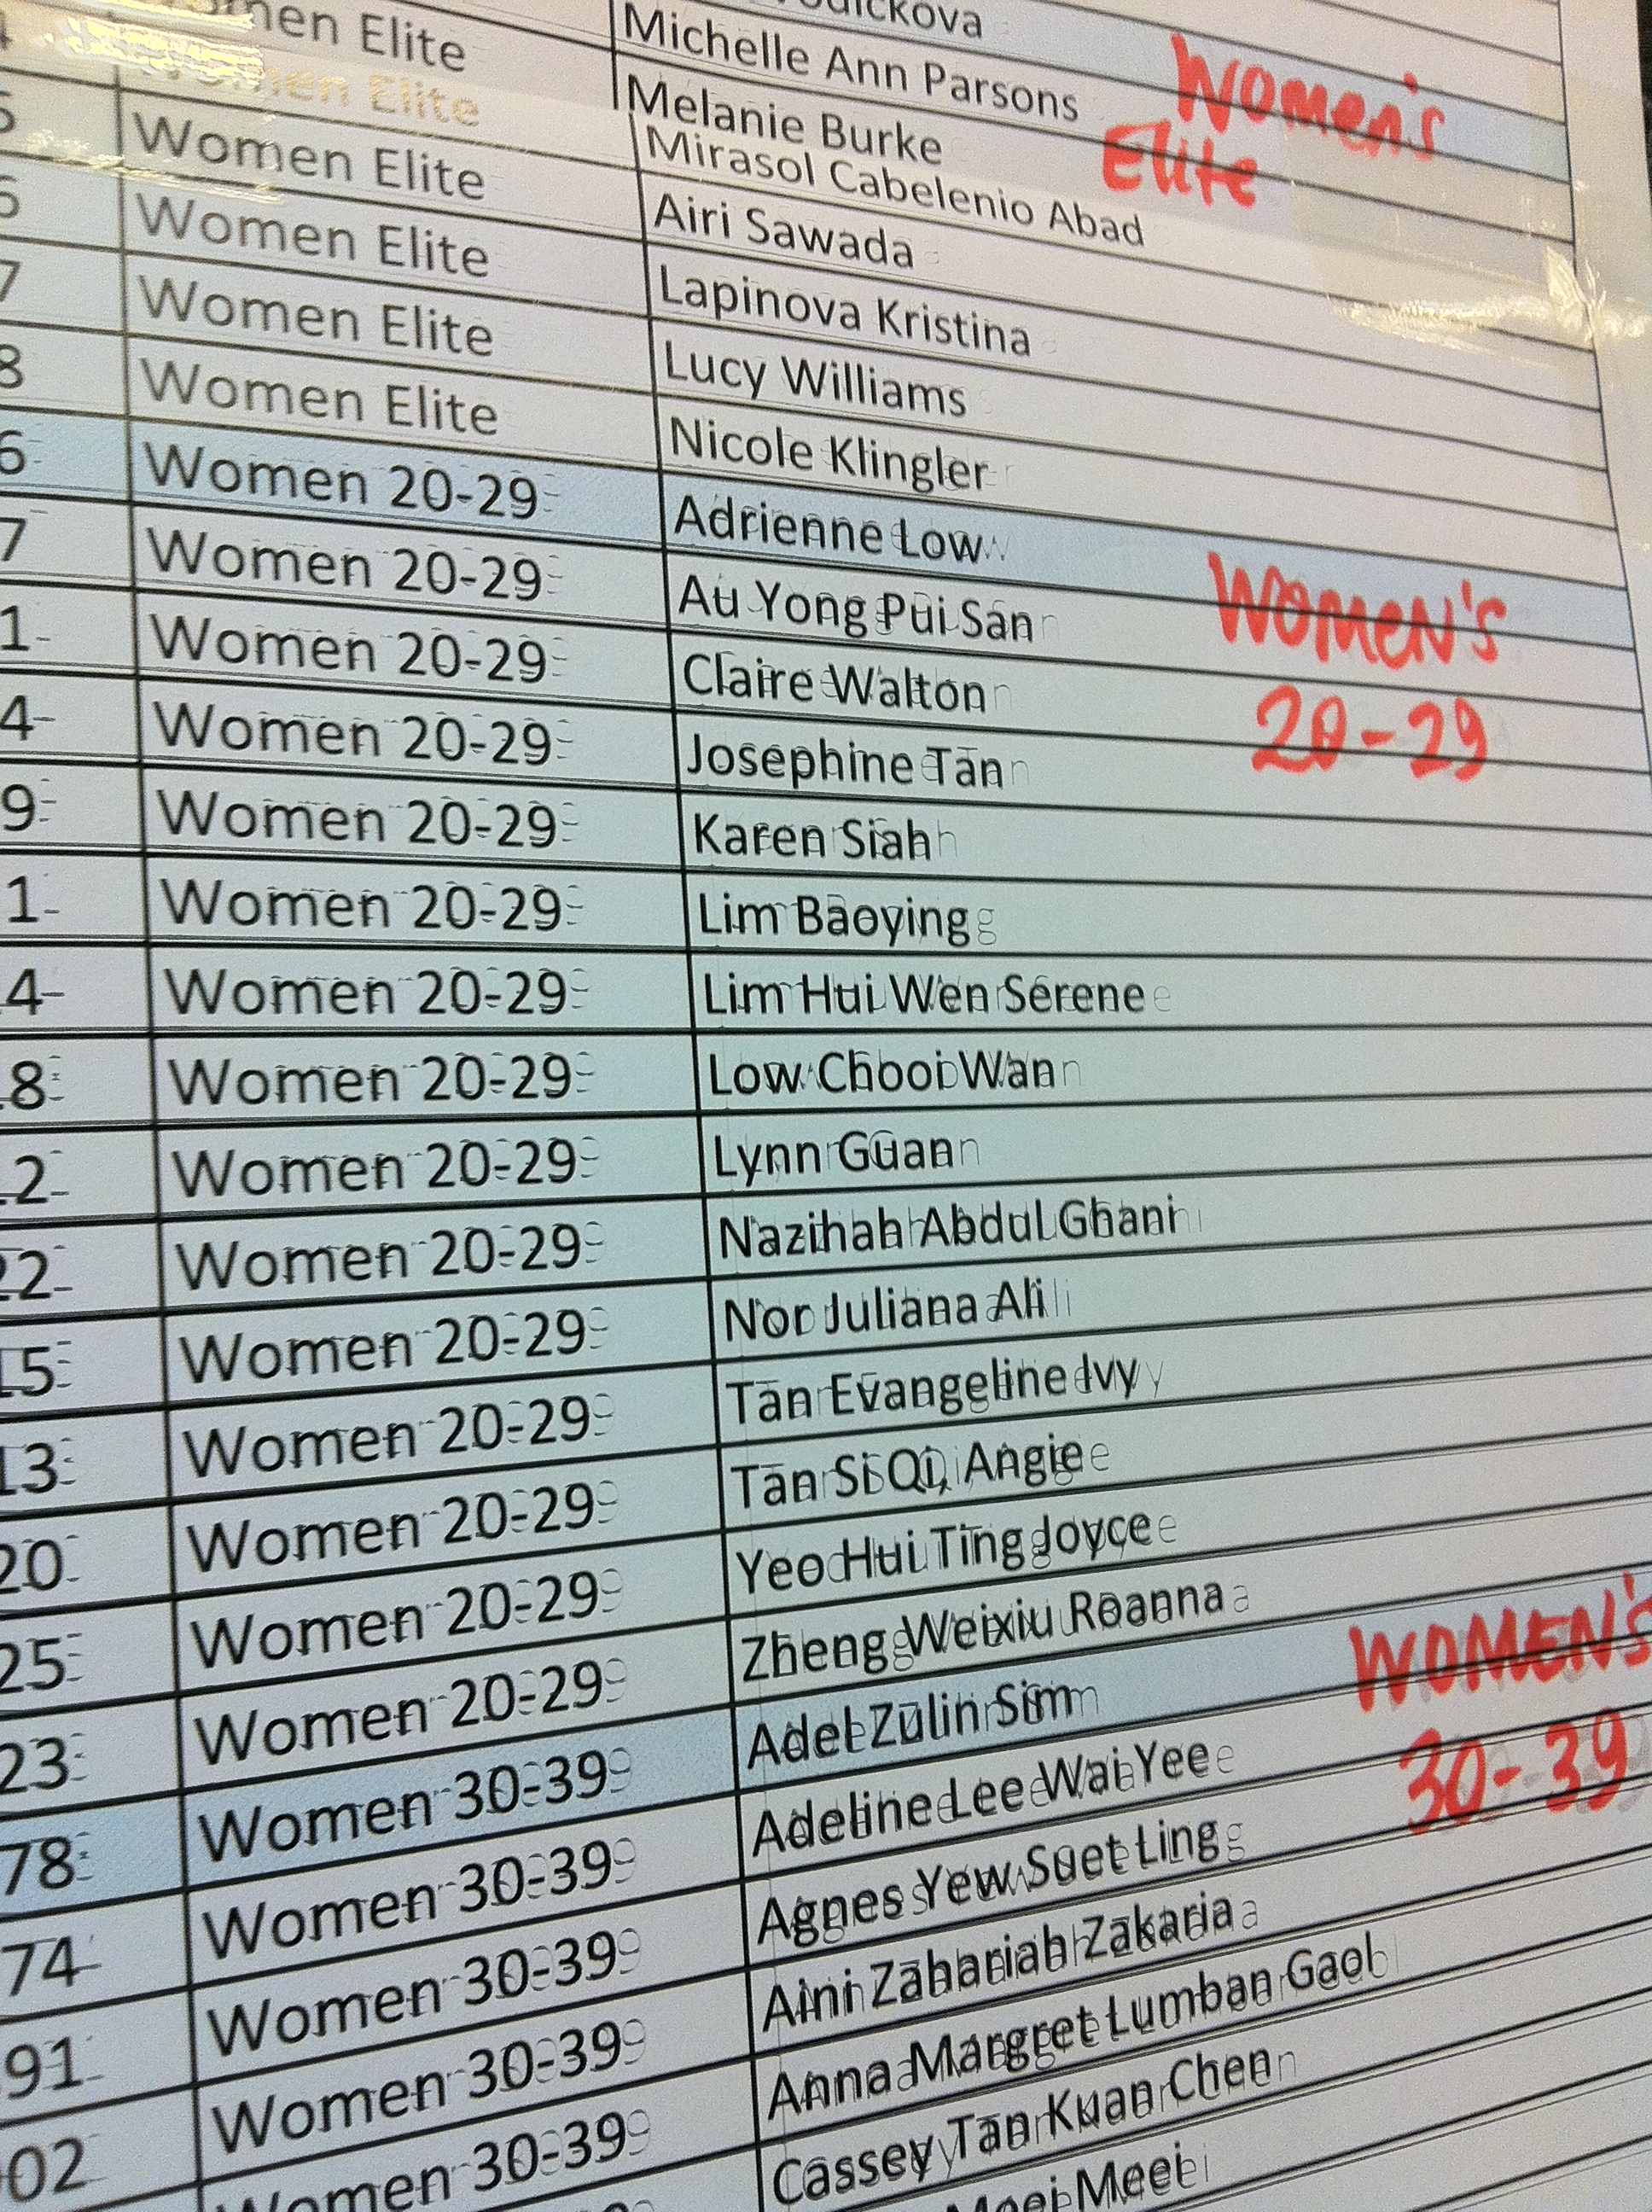 Michelle Ann Parsons Women's
Elite Melanie Burke Elite
Women Elite Mirasol Cabelenio Abad
5 Women Elite Airi Sawada
6 Women Elite Lapinova Kristina
7 Women Elite Lucy Williams
8 Women Elite Nicole Klingler
6 Women 20-29 Adrienne Low
7 Women 20-29 Au Yong Pui San WOMEN'S
1 Women 20-29 Claire Walton
4 Women 20-29 Josephine Tan 20-29
9 Women 20-29 Karen Siah
1 Women 20-29 Lim Baoying
4 Women 20-29 Lim Hui Wen Serene
8 Women 20-29 Low Chooi Wan
2 Women 20-29 Lynn Guan
22 Women 20-29 Nazihah Abdul Ghani
15 Women 20-29 Nor Juliana Ali
13 Women 20-29 Tan Evangeline Ivy
20 Women 20-29 Tan Si Qi, Angie
25 Women 20-29 Yeo Hui Ting Joyce
23 Women 20-29 Zheng Weixiu Roanna
78 Women 30-39 Adel Zulin Sim WOMEN'S
74 Women 30-39 Adeline Lee Wai Yee 30-39
91 Women 30-39 Agnes Yew Suet Ling
02 Women 30-39 Aini Zahariah Zakaria
Women 30-39 Anna Margret Lumban Gaol
Cassey Tan Kuan Chen
Meei